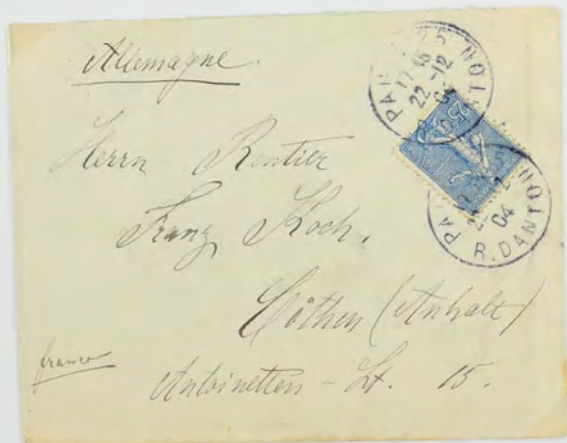 Allemagne.
Herrn Rentier
Franz Koch.
Cöthen (Anhalt)
franco
Antoinetten - St. 15.
PARIS 25
17 15
22 - 12
04
R. DANTON
25
PARIS
04
R. DANTON